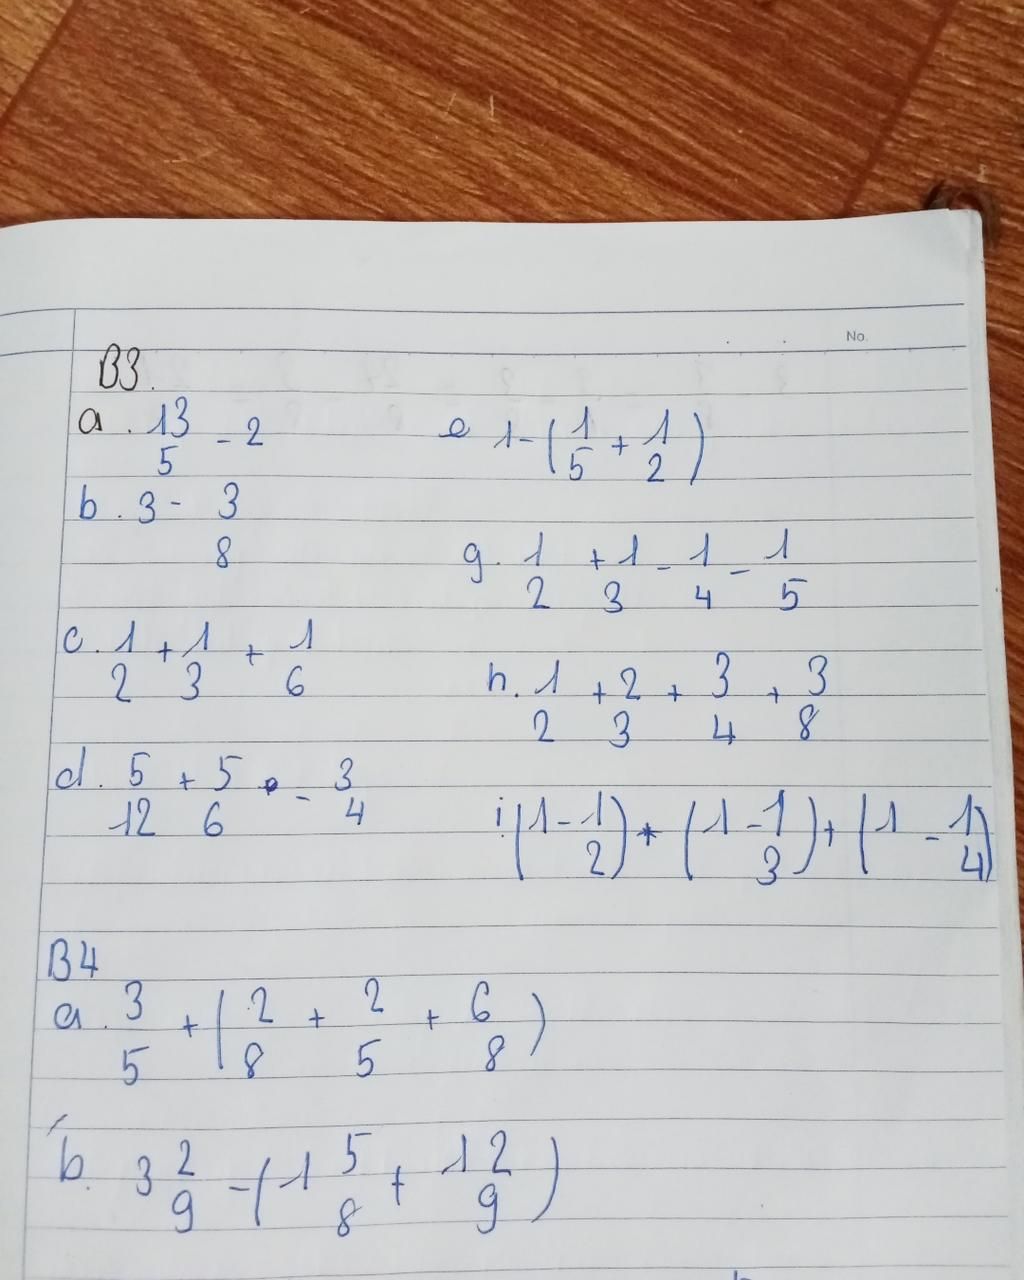 No.
B3.
a. 13/5 - 2
b. 3 - 3/8
c. 1/2 + 1/3 + 1/6
d. 5/12 + 5/6 - 3/4
e 1 - (1/5 + 1/2)
g. 1/2 + 1/3 - 1/4 - 1/5
h. 1/2 + 2/3 + 3/4 + 3/8
i. (1 - 1/2) + (1 - 1/3) + (1 - 1/4)
B4
a. 3/5 + (2/8 + 2/5 + 6/8)
b. 3 2/9 - (1 5/8 + 1 2/9)